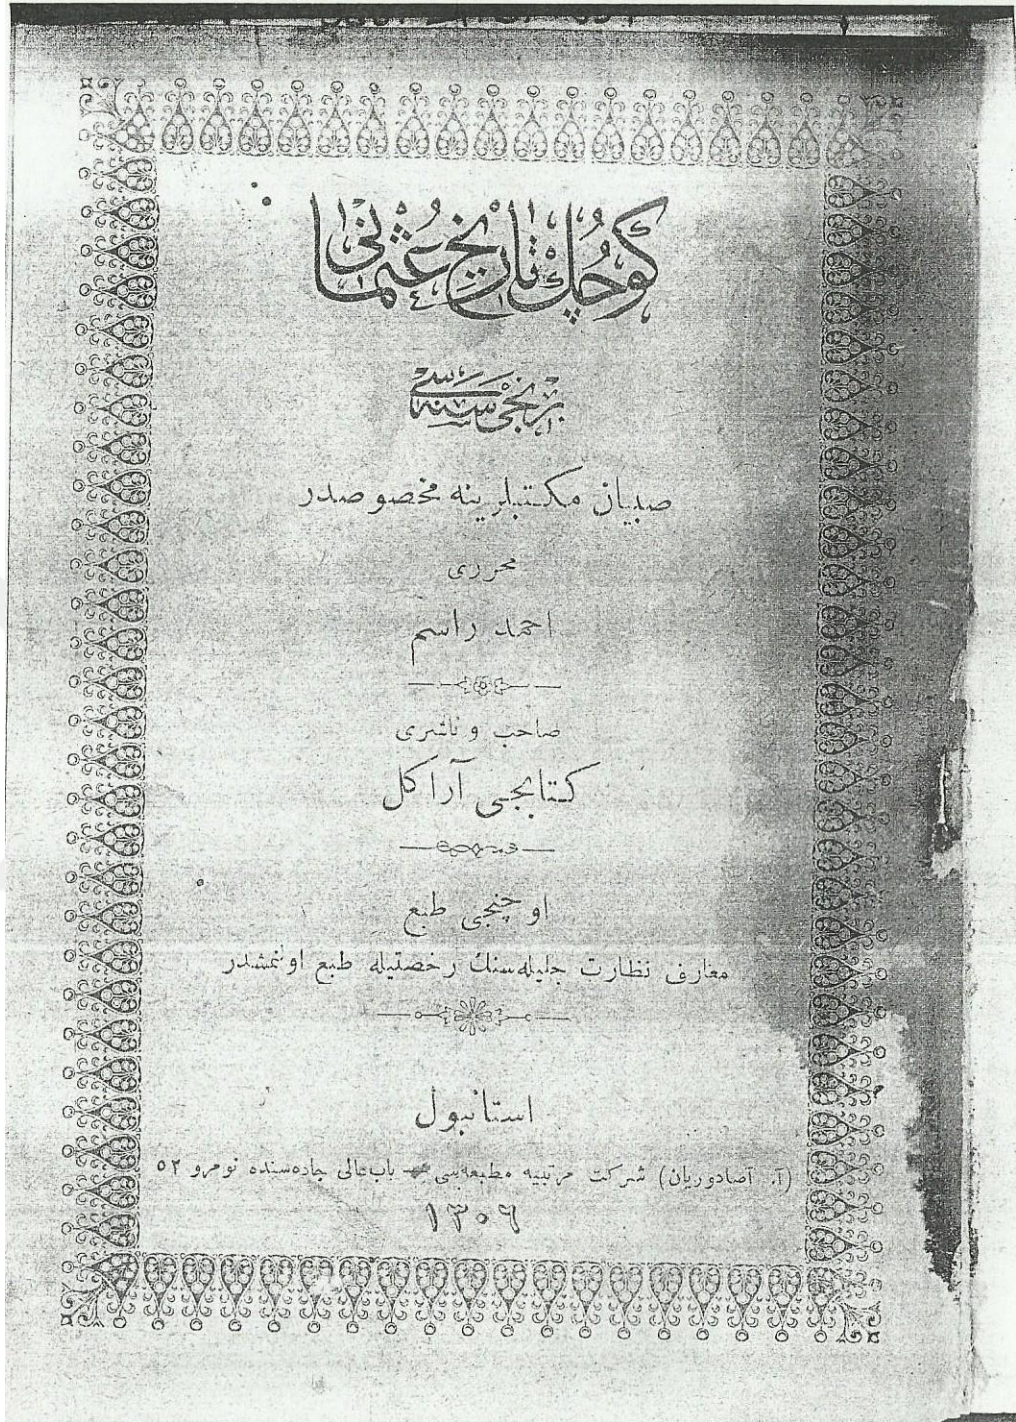 كوچك تاريخ عثمانی
برنجی سنه‌سی
صبیان مکتبلرینه مخصوصدر
محرری
احمد راسم
صاحب و ناشری
کتابجی آراکل
اوچنجی طبع
معارف نظارت جلیله‌سنك رخصتیله طبع اولنمشدر
استانبول
(آ. آصادوریان) شرکت مرتبیه مطبعه‌سی — باب‌عالی جاده‌سنده نومرو ٥٢
١٣٠٦